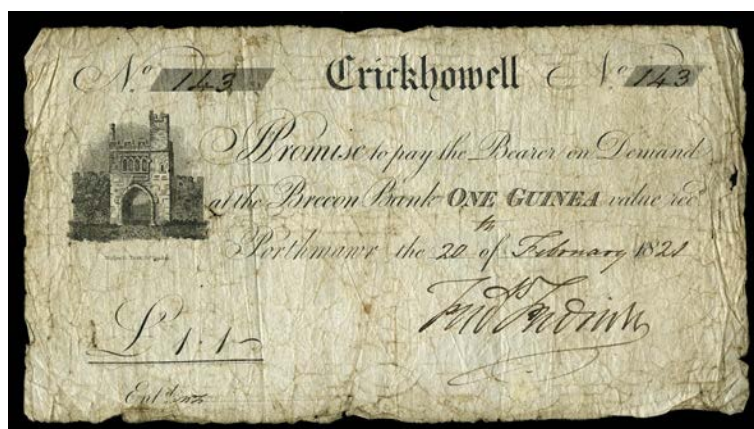 No. 143 Crickhowell No. 143
I Promise to pay the Bearer on Demand
at the Brecon Bank ONE GUINEA value recd.
Porthmawr the 20th of February 1821
£1.1-
Entd.